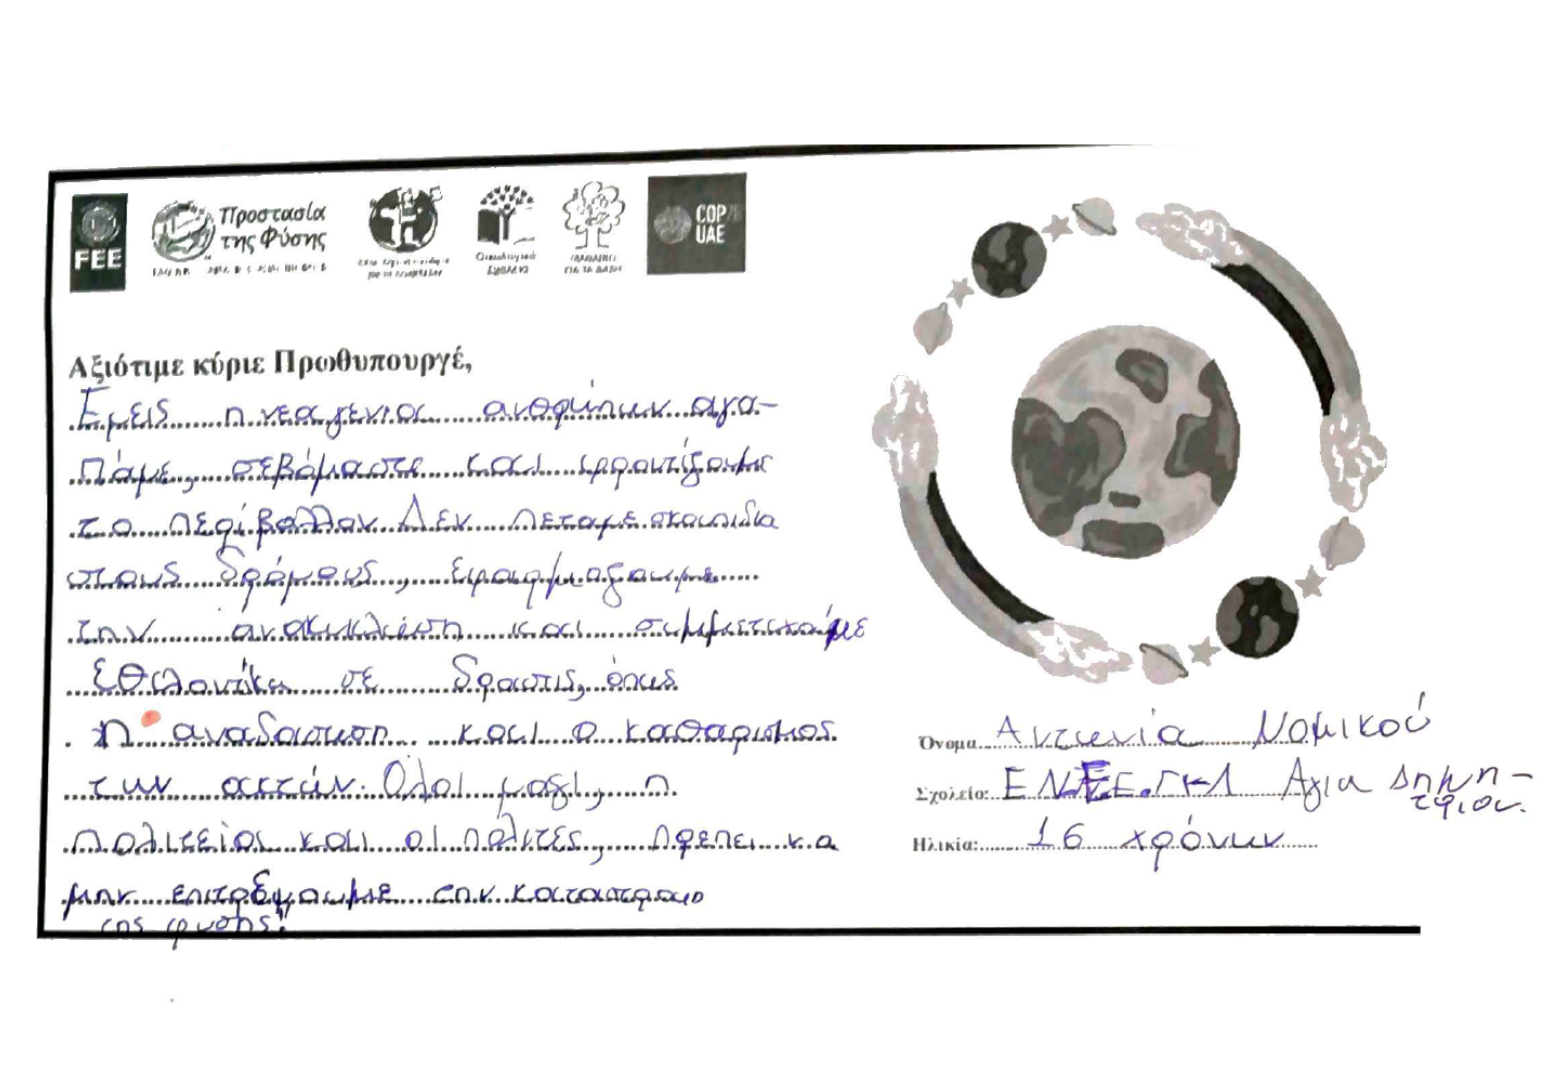 FEE
Προστασία
της Φύσης
Οικολογικά
Σχολεία
COP
UAE
Αξιότιμε κύριε Πρωθυπουργέ,
Εμεις η νεα γενια ανθρώπων αγα-
πάμε, σεβόμαστε και φροντίζουμε
το περίβαλλον. Δεν πεταμε σκουπιδια
στους δρόμους, εφαρμοζουμε
την ανακυκλωση και συμμετεχουμε
εθελοντικα σε δρασεις, όπως
η αναδασωση και ο καθαρισμος
των ακτών. Ολοι μαζι, η
πολιτεία και οι πολιτες, πρεπει να
μην επιτρέψουμε την καταστροφη
της φυσης!
Όνομα: Αντωνία Νομικού
Σχολείο: ΕΝ.Ε.Ε.ΓΥ-Λ Αγια Δημη-
τριου.
Ηλικία: 16 χρόνων